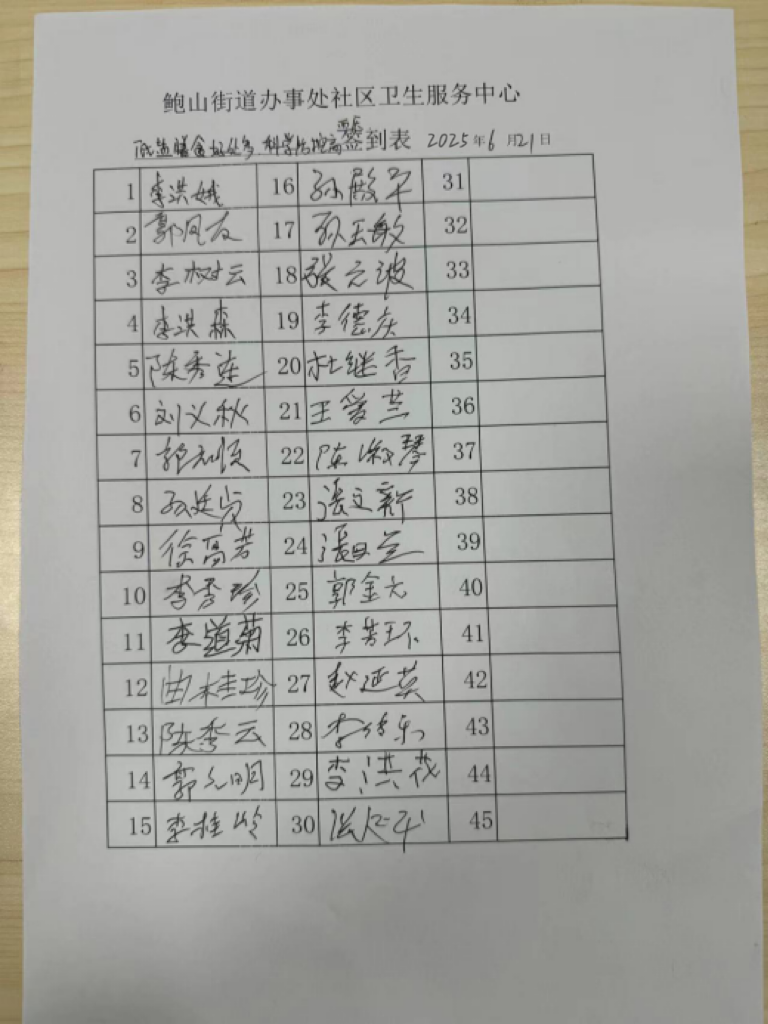 鲍山街道办事处社区卫生服务中心
低盐膳食好处多 科学防控高 签到表 2025年6月21日
1 李洪娥 16 孙殿军 31
2 郭凤友 17 孙玉敏 32
3 李树云 18 张元波 33
4 李洪森 19 李德庆 34
5 陈秀莲 20 杜继香 35
6 刘义秋 21 王爱兰 36
7 郭利顺 22 陈淑琴 37
8 孙廷贞 23 张立新 38
9 徐高芳 24 张 40
10 李秀珍 25 郭金元 40
11 李道菊 26 李芳环 41
12 曲桂珍 27 赵延英 42
13 陈季云 28 李传 43
14 郭元明 29 李洪茂 44
15 李桂岭 30 45